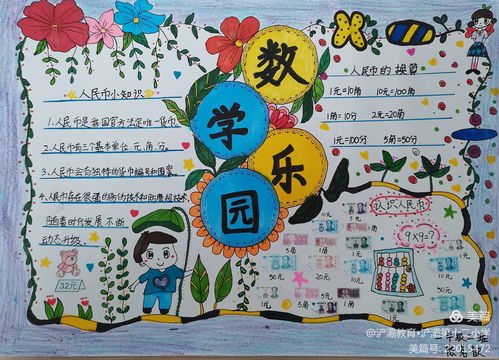 数学乐园
人民币小知识
1.人民币是我国官方法定唯一货币.
2.人民币有三个基本单位元.角.分.
3.人民币会有独特的货币编号和图案.
4.人民币存在很强的防伪技术和
随着时代发展不断
动态升级.
32元
人民币的换算
1元=10角 10元=100角
1角=10分 2元=20角
1元=100分 5角=50分
认识人民币
9×9=?
10元
5元
5角
50元
20元
10元
50元
1元
5角
美篇
@浐灞教育·浐灞第十二小学
美篇号 22015472